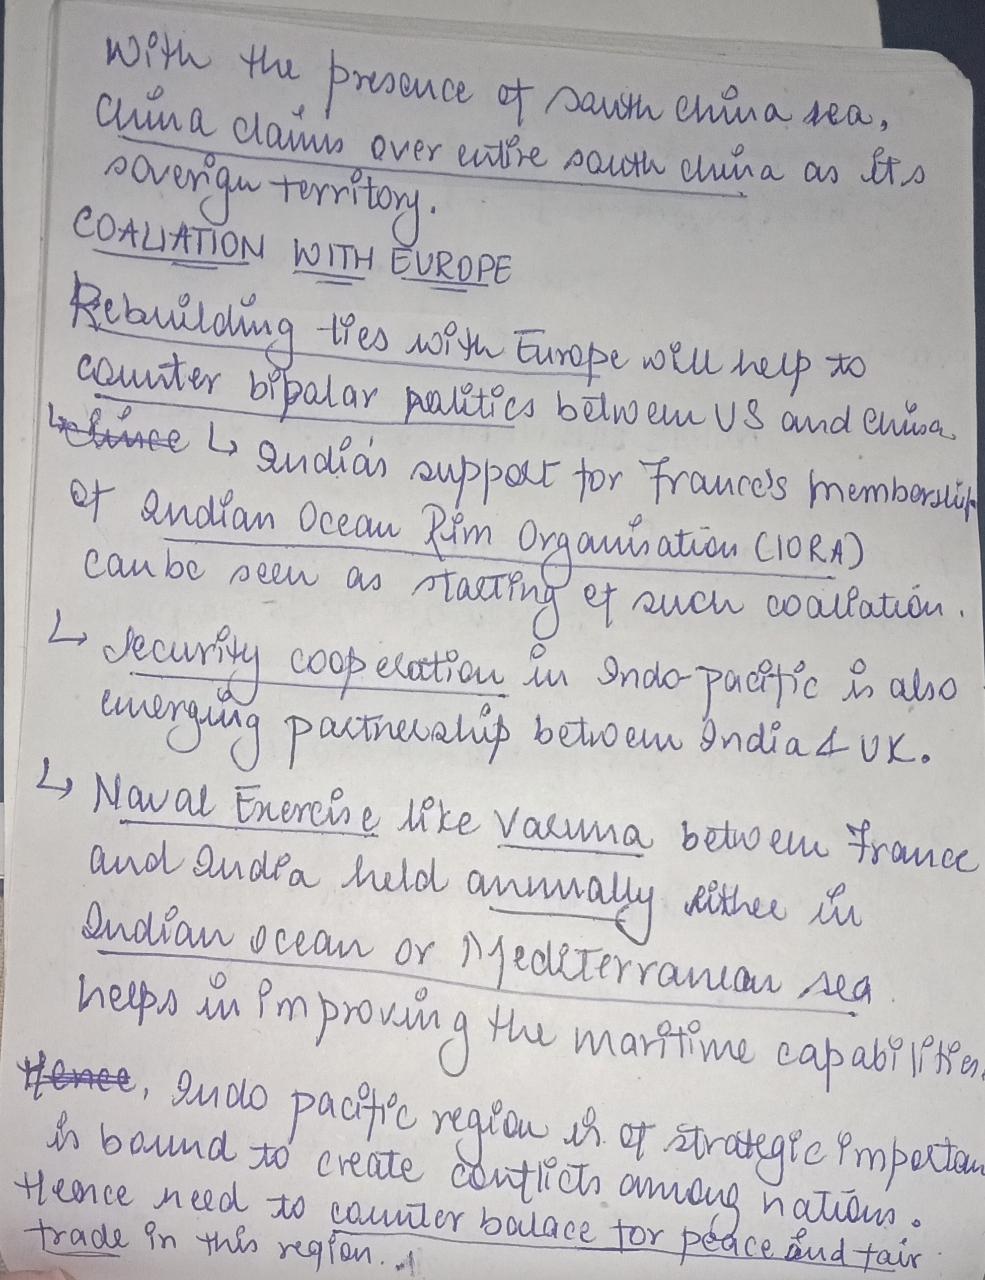 With the presence of south china sea,
China claims over entire south china as its
soverign territory.
COALIATION WITH EUROPE
Rebuilding ties with Europe will help to
counter bipolar politics between US and China.
↳ Since ↳ India's support for France's membership
of Indian Ocean Rim Organisation (IORA)
can be seen as starting of such coaliation.
↳ Security cooperation in Indo-pacific is also
emerging partnership between India & UK.
↳ Naval Exercise like Varuna between France
and India held annually either in
Indian ocean or Mediterranean sea
helps in improving the maritime capabilities.
Hence, Indo pacific region is of strategic importan
is bound to create conflicts among nations.
Hence need to counter balace for peace and fair
trade in this region.